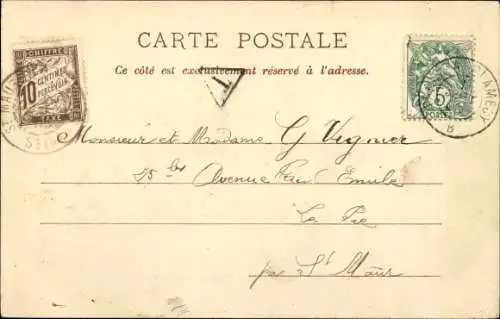 CARTE POSTALE
Ce côté est exclusivement réservé à l'adresse.
CHIFFRE
10
CENTIMES
À PERCEVOIR
TAXE
T
5
POSTES
Monsieur et Madame G Vigner
25 bis Avenue Emile
La Pie
par St Maur